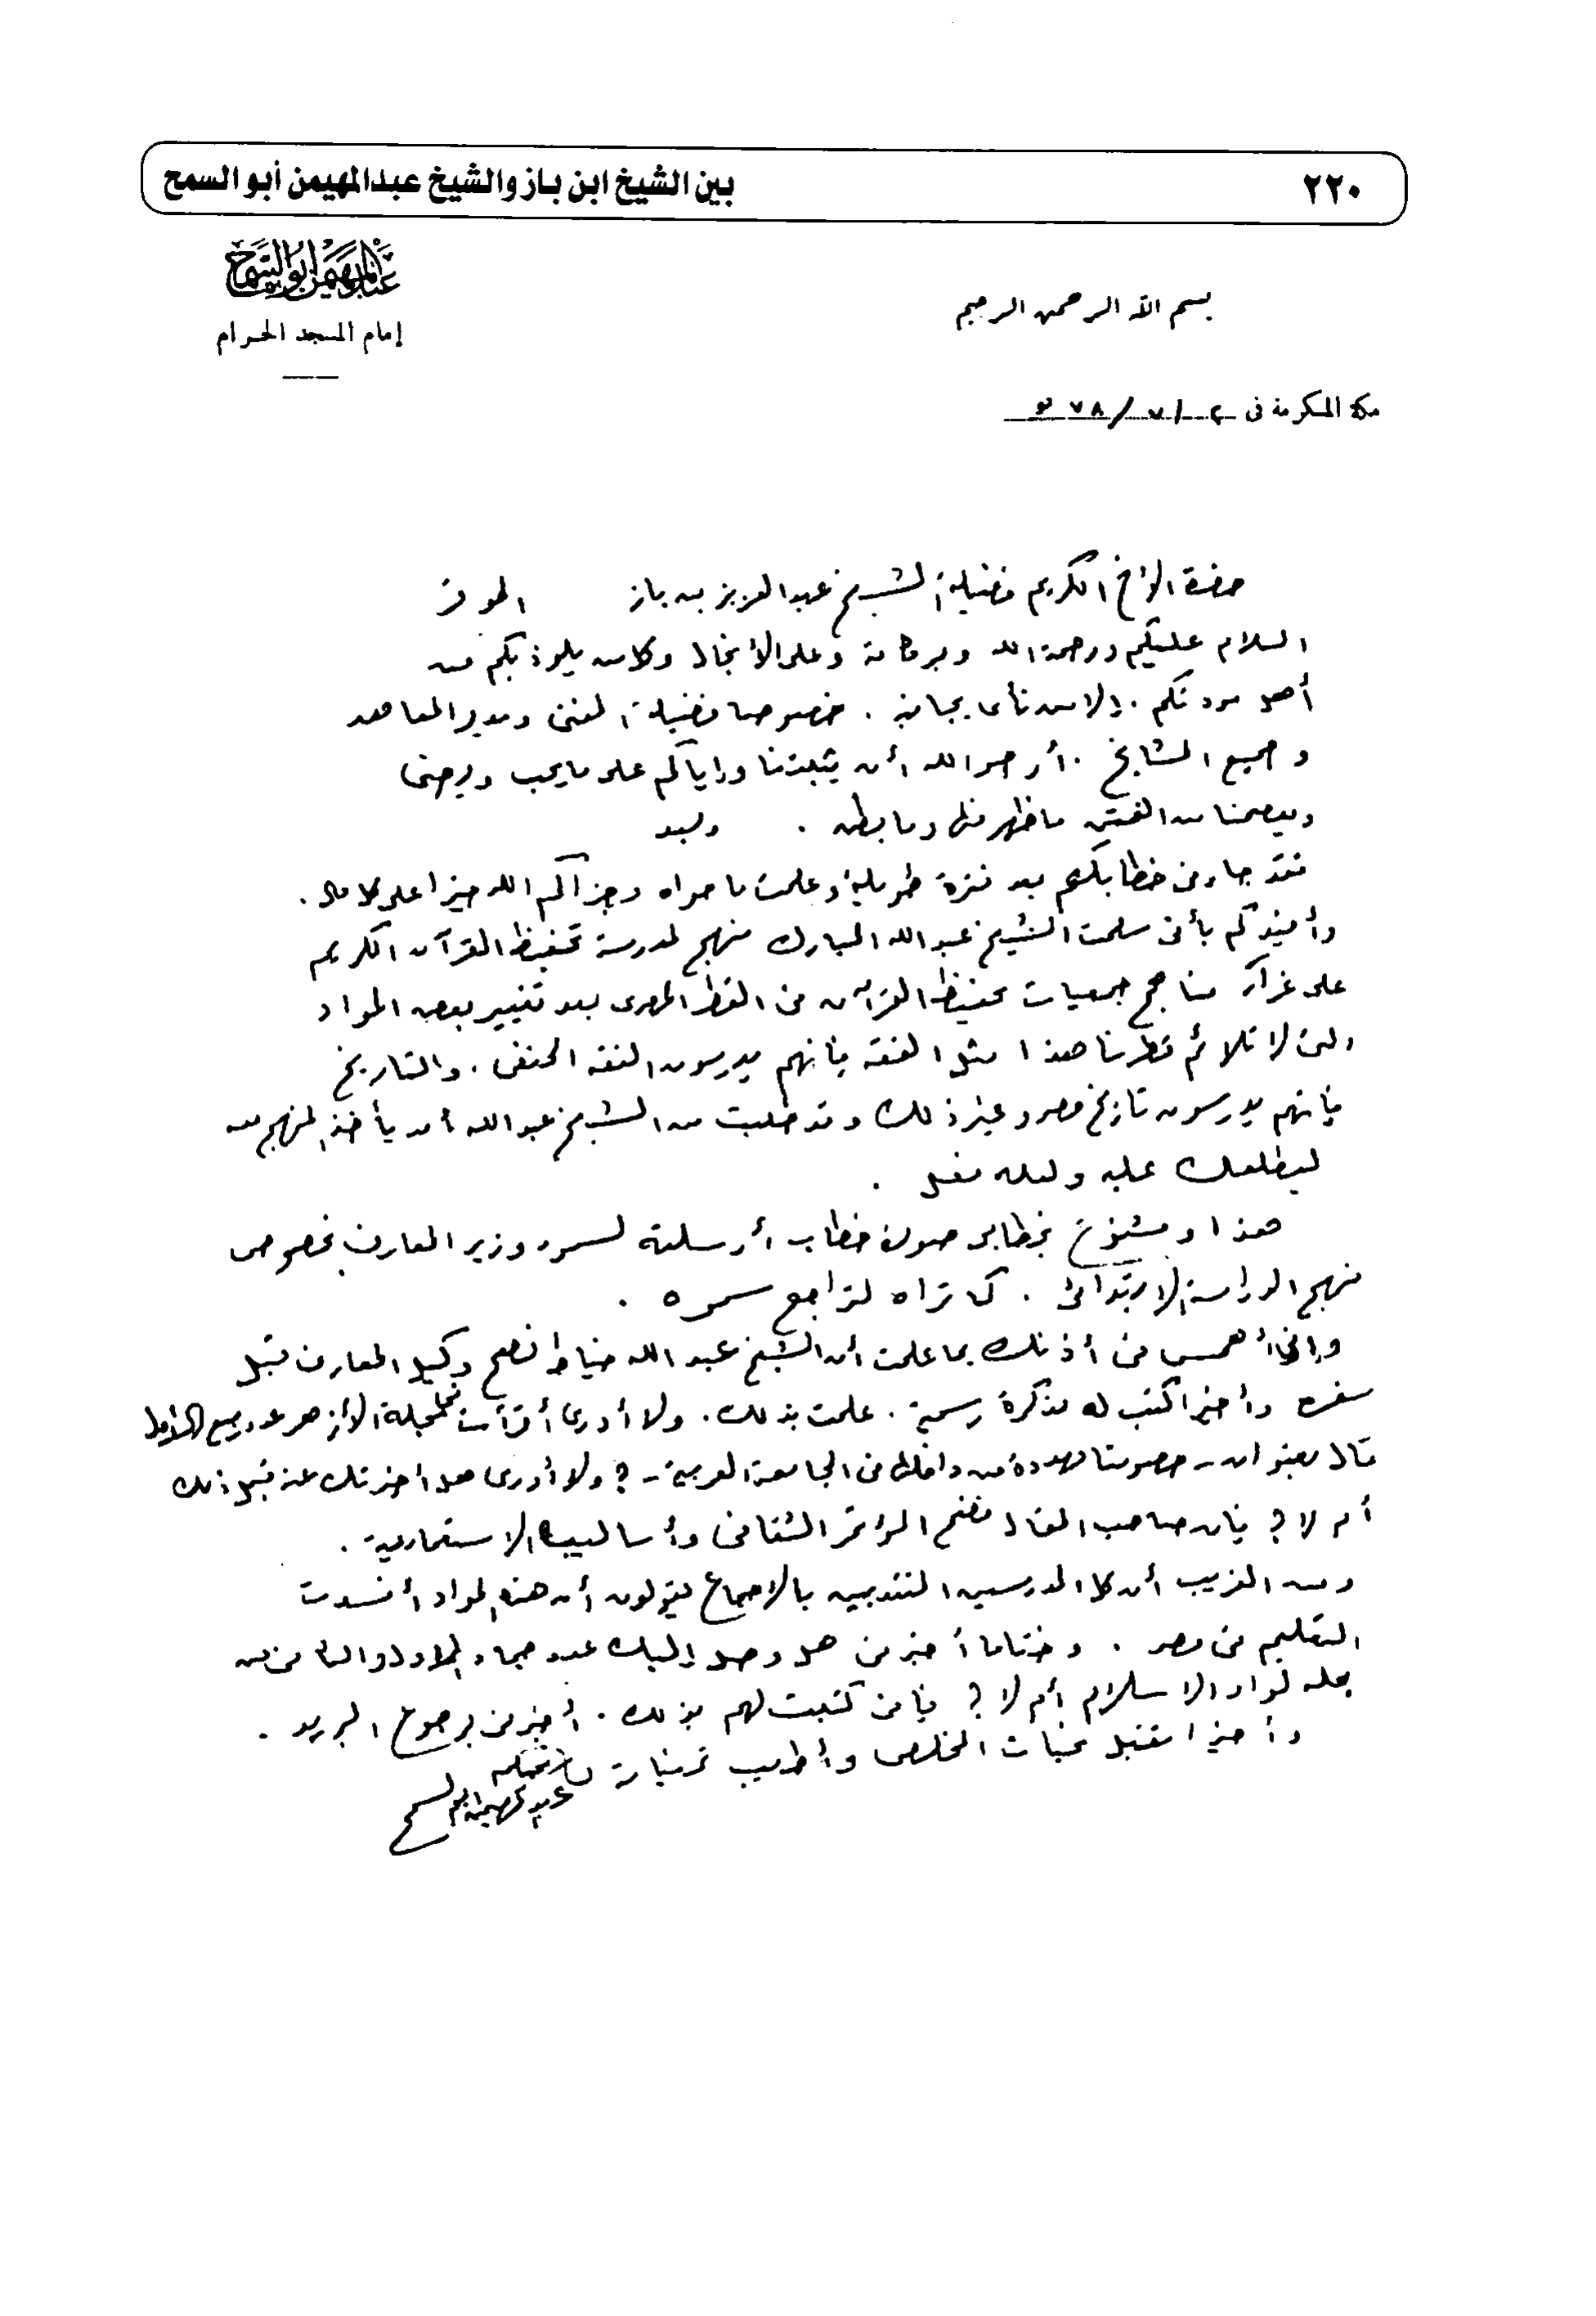 ٢٢٠ بين الشيخ ابن باز والشيخ عبدالمهيمن أبو السمح
عبد المهيمن أبو السمح
إمام المسجد الحرام
بسم الله الرحمن الرحيم
مكة المكرمة فى ٢/٧/٧٨
حضرة الأخ الكريم فضيلة الشيخ عبد العزيز بن باز الموقر
السلام عليكم ورحمة الله وبركاته وعلى الأنجال وكل من يلوذ بكم من
أهل مودتكم . إلا من نأى بجانبه . خصوصا فضيلة المفتى ومدير المعاهد
وجميع المشايخ . أرجو الله أن يثبتنا وإياكم على ما يحب ويرضى
ويعصمنا من الفتن ما ظهر منها وما بطن . وبعد
فقد جاءنى خطابكم بعد فترة طويلة وعلمت ما حواه وجزاكم الله خيرا على كل حال .
وأفيدكم بأنى سلمت الشيخ عبد الله المبارك منهج لمدرسة تحفيظ القرآن الكريم
على غرار مناهج جمعيات تحفيظ القرآن فى القطر المصرى بعد تغيير بعض المواد
التى لا تلائم قطرنا هذا مثل الفقه فإنهم يدرسون الفقه الحنفى . والتاريخ
فإنهم يدرسون تاريخ مصر وغير ذلك وقد طلبت من الشيخ عبد الله أن يأخذ المنهج معه
ليطلعك عليه ولعله فعل .
هذا ومشفوع بخطابى صورة خطاب أرسلته لسمو وزير المعارف بخصوص
منهج الدراسة الابتدائى . كى تراه لتراجع سموه .
وإنى أهمس فى أذنك بما علمت أن الشيخ عبد الله خياط نصح وكيل المعارف قبل
سفره وأخيرا كتب له مذكرة رسمية . علمت بذلك . ولا أدرى أقرأت مجلة الأزهر عدد ربيع الأول
مقال بعنوان - حصوننا مهددة من داخلها فى الجامعة العربية - ؟ ولا أدرى هل أخبرتك عنه قبل ذلك
أم لا ؟ فإن صاحب المقال فضح المؤتمر الثقافى وأساليبه الاستعمارية .
ومن الغريب أن كل المدرسين المنتدبين بالإجماع يقولون أن هذه المواد أفسدت
التعليم فى مصر . وختاما أخبرنى هل وصل إليك عدد جماد الأول والثانى من
مجلة لواء الاسلام أم لا ؟ فإنى كتبت لهم بذلك . أخبرنى برجوع البريد .
وأخيرا تقبل تحيات المخلص وأطيب تمنياته
عبد المهيمن أبو السمح